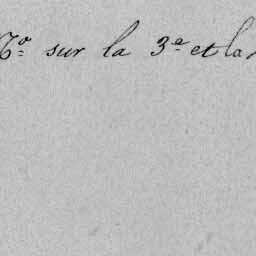 6º sur la 3.e et la